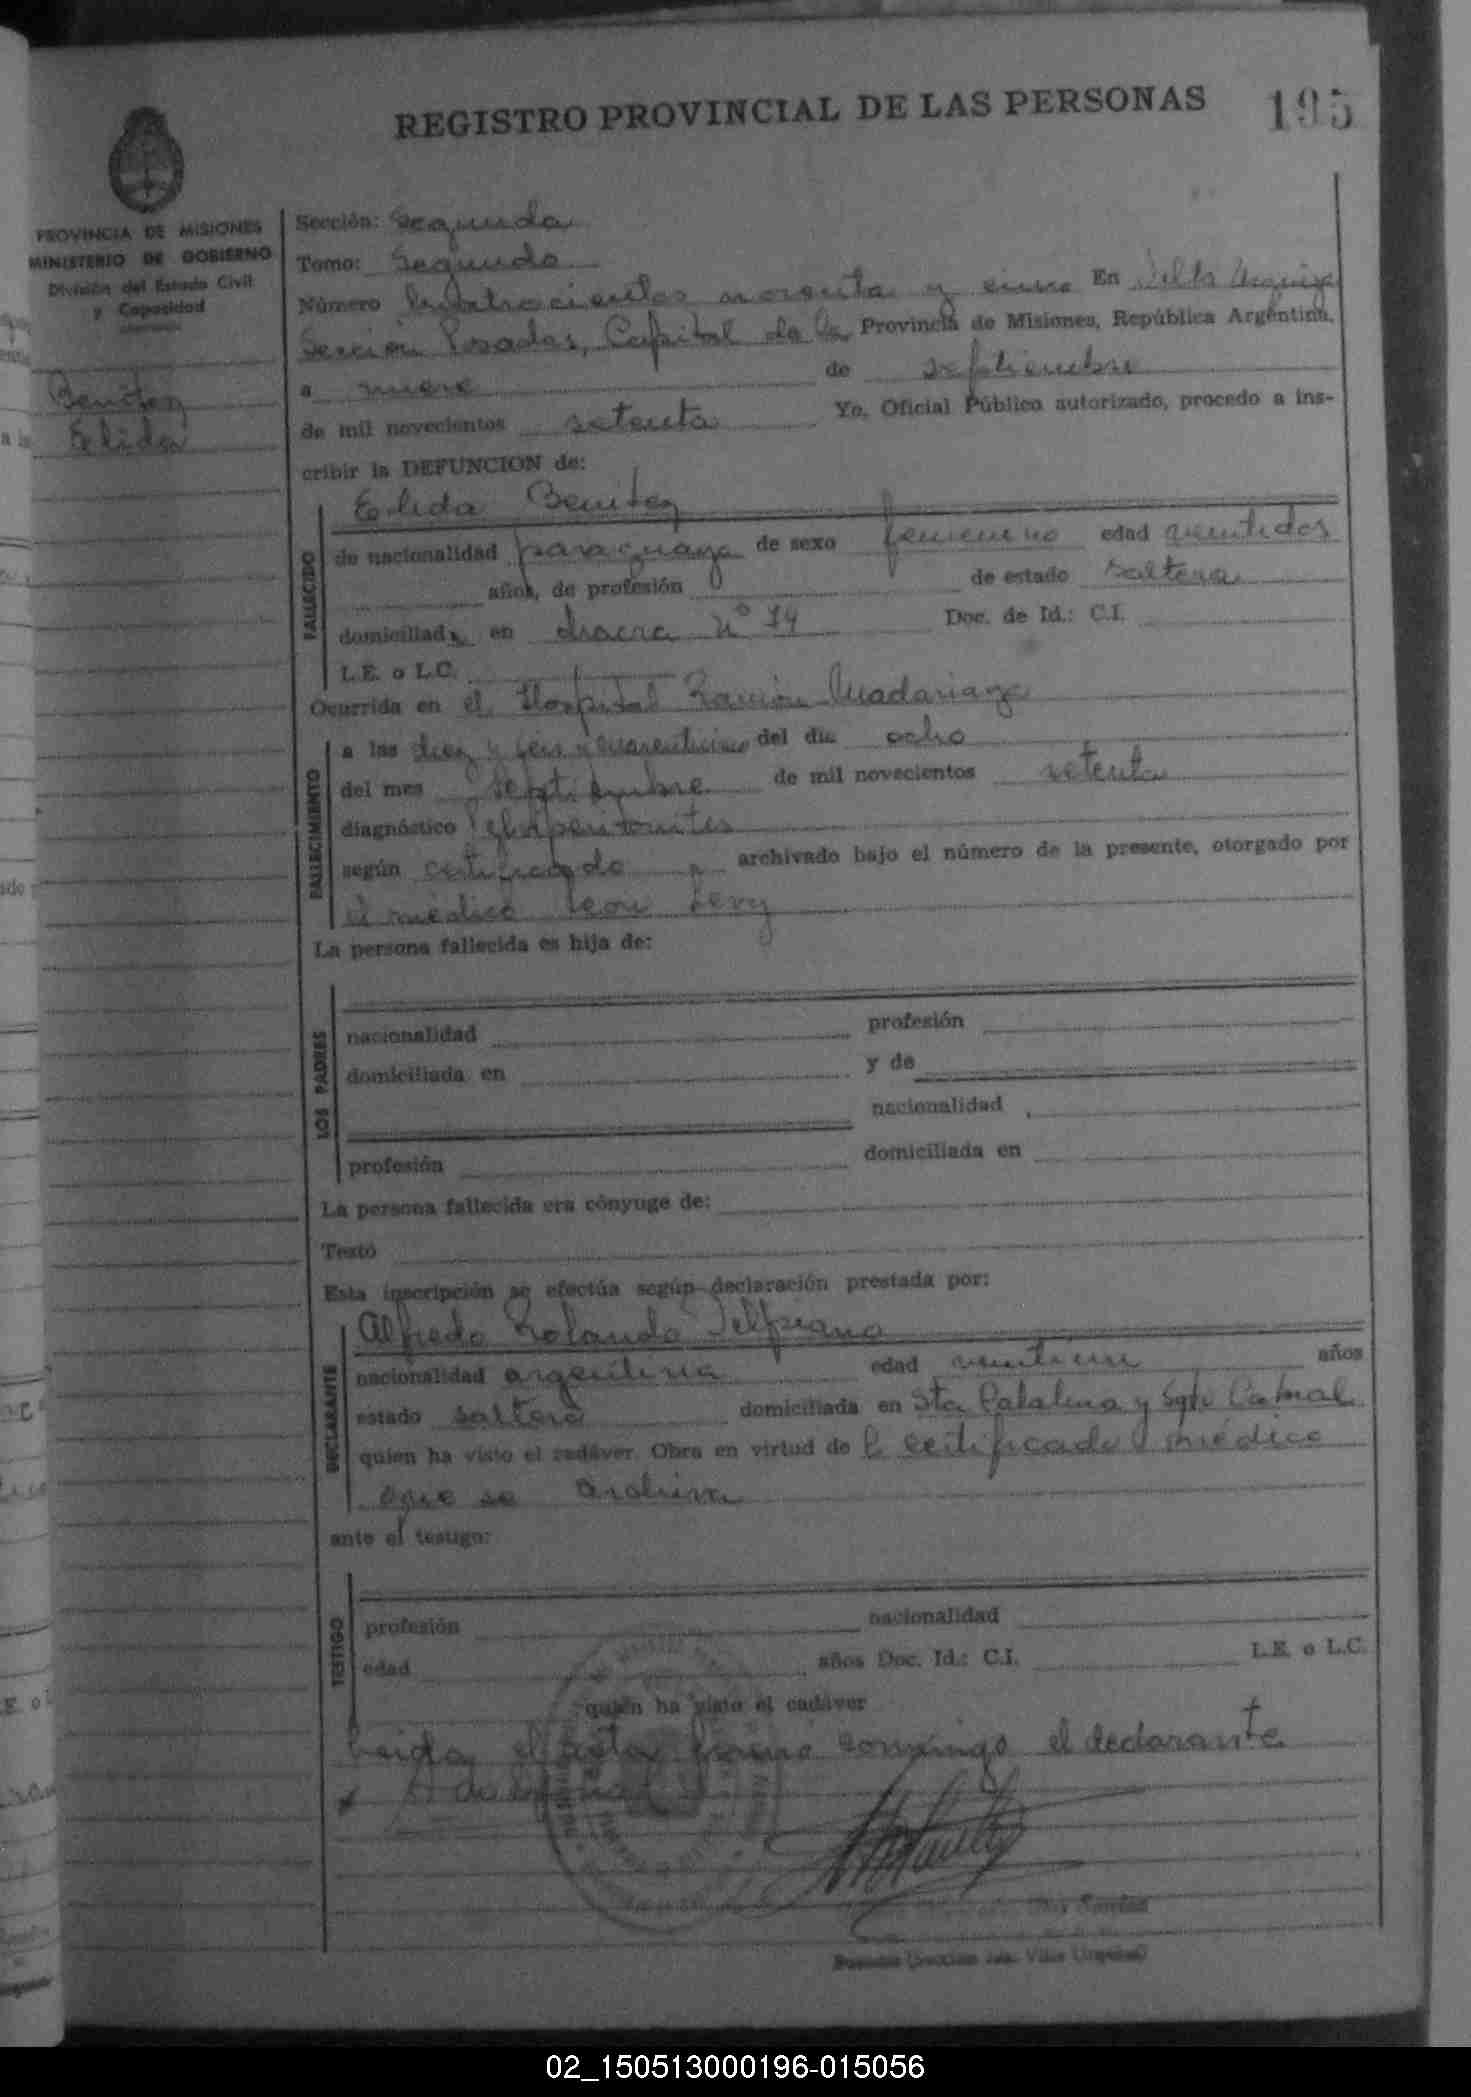 REGISTRO PROVINCIAL DE LAS PERSONAS
195
PROVINCIA DE MISIONES
MINISTERIO DE GOBIERNO
División del Estado Civil
y Capacidad
Benitez
Elida
Sección: Segunda
Tomo: Segundo
Número Cuatrocientos noventa y cinco En Villa Urquiza
Sección Posadas, Capital de la Provincia de Misiones, República Argentina,
a nueve de septiembre
de mil novecientos setenta Yo, Oficial Público autorizado, procedo a ins-
cribir la DEFUNCION de:
Elida Benitez
FALLECIDO
de nacionalidad paraguaya de sexo femenino edad veintidos
años, de profesión de estado soltera
domiciliada en chacra Nº 74 Doc. de Id.: C.I.
L.E. o L.C.
Ocurrida en el Hospital Ramón Madariaga
FALLECIMIENTO
a las diez y seis y cuarenticinco del día ocho
del mes septiembre de mil novecientos setenta
diagnóstico
según certificado archivado bajo el número de la presente, otorgado por
el médico León Levy
La persona fallecida es hija de:
LOS PADRES
nacionalidad profesión
domiciliada en y de
nacionalidad
profesión domiciliada en
La persona fallecida era cónyuge de:
Testó
Esta inscripción se efectúa según declaración prestada por:
Alfredo Rolando
DECLARANTE
nacionalidad argentina edad años
estado soltero domiciliada en Sta Catalina y Sgto Cabral
quien ha visto el cadáver. Obra en virtud de l certificado médico
que se archiva
ante el testigo:
TESTIGO
profesión nacionalidad
edad años Doc. Id.: C.I. L.E. o L.C.
quien ha visto el cadáver
Leida el acta firma conmigo el declarante
02_150513000196-015056